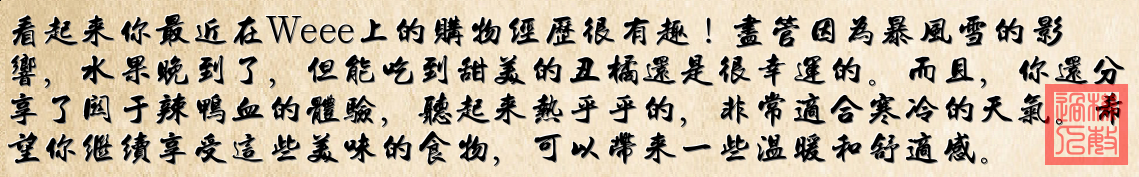 看起来你最近在Weee上的購物經歷很有趣！盡管因為暴風雪的影
響，水果晚到了，但能吃到甜美的丑橘還是很幸運的。而且，你還分
享了関于辣鴨血的體驗，聽起来熱乎乎的，非常適合寒冷的天氣。希
望你继續享受這些美味的食物，可以帶来一些溫暖和舒適感。